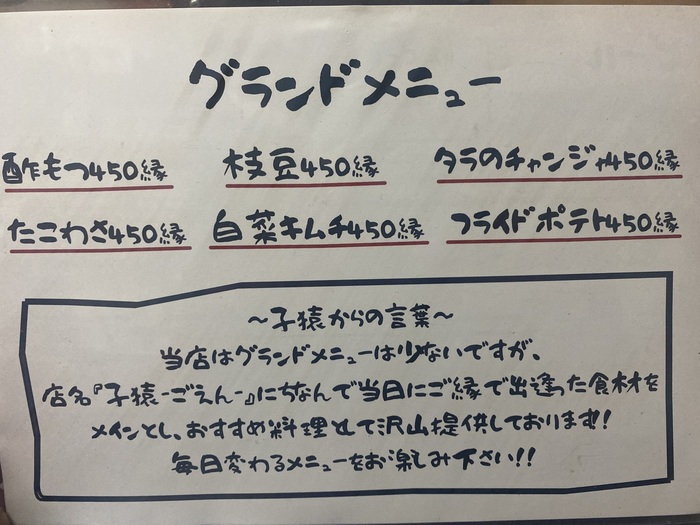 グランドメニュー
酢もつ450縁 枝豆450縁 タラのチャンジャ450縁
たこわさ450縁 白菜キムチ450縁 フライドポテト450縁
～子猿からの言葉～
当店はグランドメニューは少ないですが、
店名『子猿-ごえん-』にちなんで当日にご縁で出逢った食材を
メインとし、おすすめ料理として沢山提供しております!
毎日変わるメニューをお楽しみ下さい!!